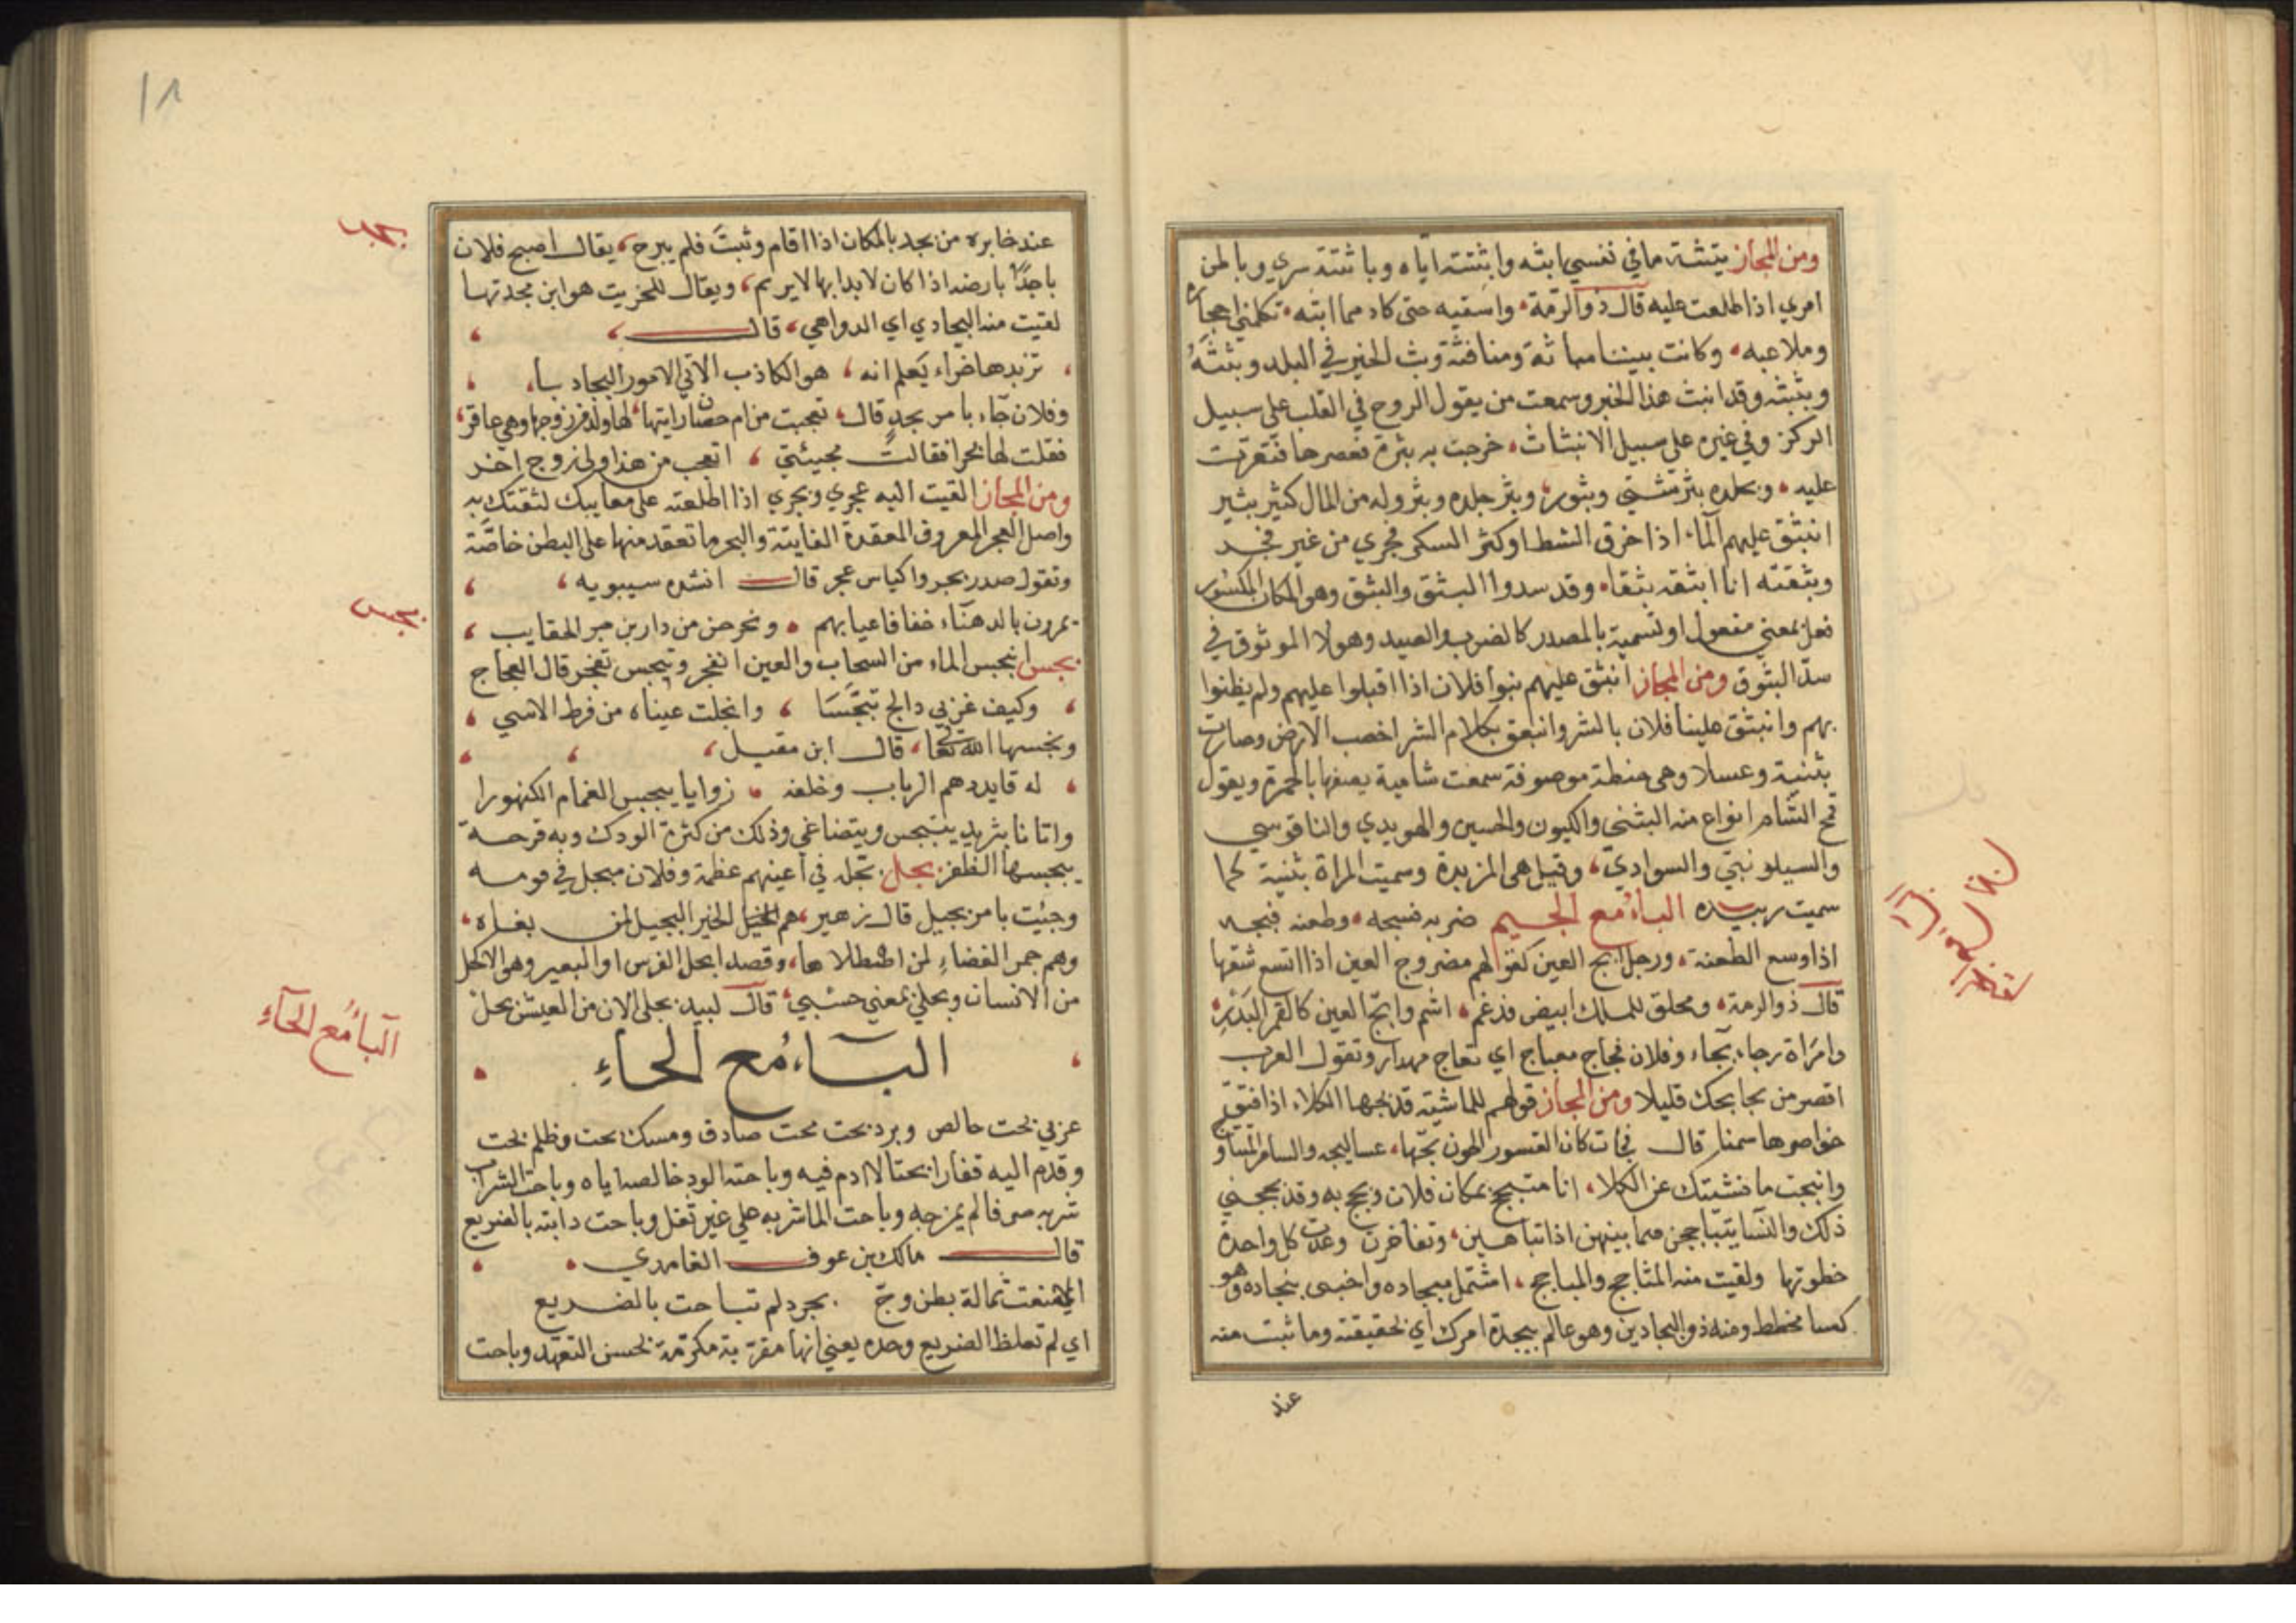 ومن المجاز بثثته ما في نفسي ابثه وابثثته اياه وباثثته سري وباطن
امري اذا اطلعت عليه قال ذو الرمة واسقيه حتى كاد مما ابثه تكلمني احجاره
وملاعبه وكانت بيننا مباثة ومنافثة وبث الخبر في البلد وبثثه
وبثبثه وقد انبث هذا الخبر وسمعت من يقول الروح في القلب على سبيل
الركز وفي غيره على سبيل الانبثاث خرجت به بثرة فعصرها فتقرحت
عليه وبجلده بثر شتى وبثور وبثر جلده وبثر وله من المال كثير بثير
انبثق عليهم الماء اذا خرق الشط او كثر السكر فجرى من غير فجر
وبثقته انا ابثقه بثقا وقد سدوا البثق والبثق وهو المكان المكسور
فعل بمعنى مفعول او تسمية بالمصدر كالضرب والصيد وهولا الموثوق في
سد البثوق ومن المجاز انبثق عليهم بنوا فلان اذا اقبلوا عليهم ولم يظنوا
بهم وانبثق علينا فلان بالشر وانبعق بكلام الشر اخصب الارض وصارت
بثنية وعسلا وهي حنطة موصوفة سمعت شامية يصفها بالحمرة ويقول
قمح الشام انواع منه البثنى والكيون والحسين والهويدي والناقوسي
والسيلونبتي والسوادي وقيل هي الزبدة وسميت المراة بثنية كما
سميت زبيده الباء مع الجيم ضربه فبجه وطعنه فبجه
اذا وسع الطعنة ورجل ابج العين كقولهم مضروج العين اذا اتسع شقها
قال ذو الرمة ومختلق للملك ابيض فدغم اشم وابج العين كالقمر البدر
وامراة زجاء بجاء وفلان فجاج بجباج اي نفاج مهدار وتقول العرب
اقصر من بجابجك قليلا ومن المجاز قولهم للماشية قد بجها الكلاء اذا فتق
خواصرها سمنا قال فجات كان القسور الجون بجها عساليجه والثامر المتناو
وانبجت ماشيتك عن الكلا انا متبجح بمكان فلان وبجح به وقد بجحني
ذلك والنسا يتباجحن فيما بينهن اذا تباهين وتفاخرن وعدت كل واحدة
حظوتها ولقيت منه المثاجج والمباجج اشتمل ببجاده واحتبى ببجاده وهو
كسا مخطط ومنه ذو البجادين وهو عالم ببجدة امرك اي بحقيقته وما ثبت منه
عند
١٨
عند خابره من بجد بالمكان اذا اقام وثبت فلم يبرح يقال اصبح فلان
باجدًا بارضه اذا كان لابدا بها لا يريم ويقال للخريت هو ابن بجدتها
لقيت منه البجادي اي الدواهي قال
وفلان جاء بامر بجر قال تعجبت من ام حصان رايتها لها ولد من زوجها وهي عاقر
فقلت لها بجرا فقالت مجيبتي اتعجب من هذا ولي زوج اخر
ومن المجاز القيت اليه عجري وبجري اذا اطلعته على معايبك لثقتك به
واصل العجر العروق المعقدة الفايتة والبجر ما تعقد منها على البطن خاصة
وتقول صدر بجر واكياس عجر قال انشده سيبويه
يمرون بالدهناء خفافا عيابهم ويخرجن من دارين بجر الحقايب
بجس انبجس الماء من السحاب والعين انفجر وتبجس تفجر قال العجاج
وكيف غربي دالج تبجسا وانحلت عيناه من فرط الاسي
وبجسها الله تعا قال ابن مقبل
له قايد دهم الرباب وخلفه زوايا يبجس الغمام الكنهورا
واتانا بثريد يتبجس ويتضاغى وذلك من كثرة الودك وبه قرحة
يبجسها الظفر بجل بجله في اعينهم عظمة وفلان مبجل في قومه
وجئت بامر بجيل قال زهير هم الخير البجيل لمن بغاه
وهم جمر الغضاء لمن اصطلاها وقصد ابجل الفرس او البعير وهو الاكحل
من الانسان وبجلي بمعنى حسبي قال لبيد بجلي الان من العيش بجل
الباء مع الحاء
عربي بحت خالص وبرد بحت محت صادق ومسك بحت وظلم بحت
وقدم اليه قفارا بحتا لا ادم فيه وباحته الود خالصه اياه وباحت الشراب
شربه صرفا لم يمزجه وباحت الما شربه على غير ثفل وباحت دابته بالضريع
قال مالك بن عوف الغامدي
الا منعت ثمالة بطن وج بجرد لم تباحت بالضريع
اي لم تعلف الضريع وحده يعني انها مقربة مكرمة بحسن التعهد وباحت
بجس
الباء مع الحاء